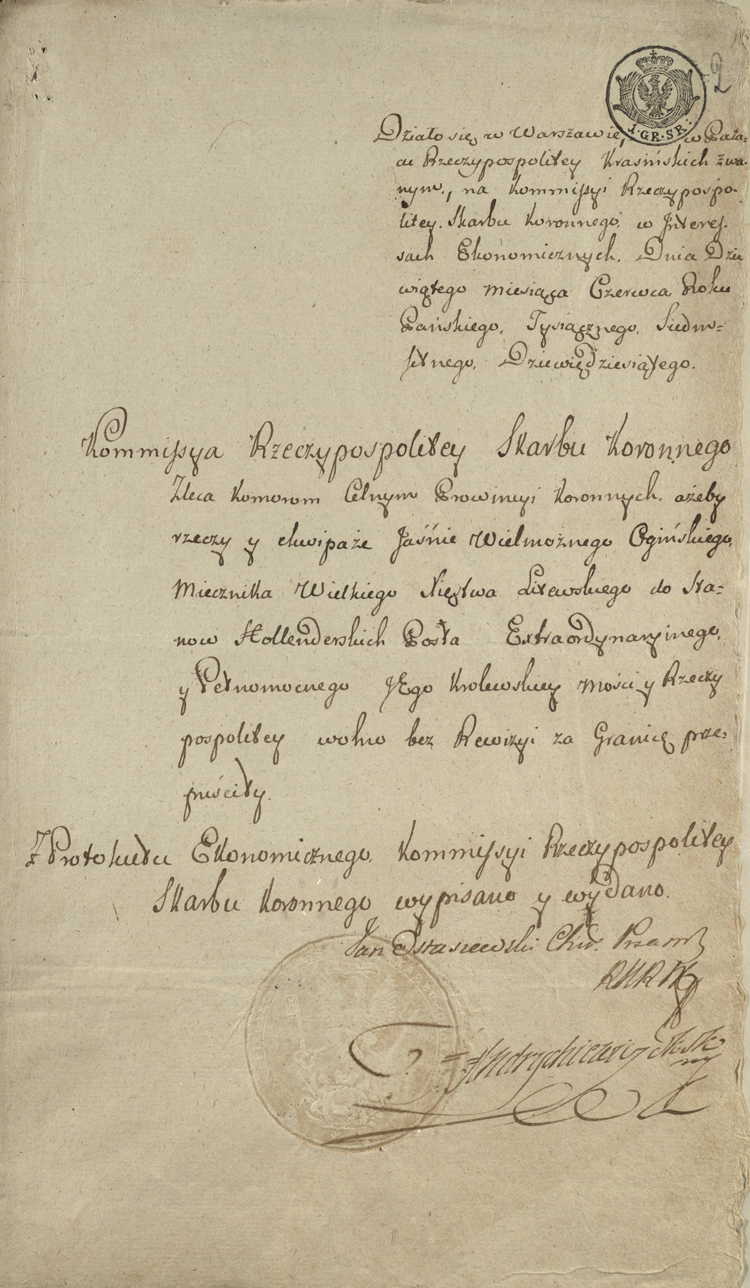 2
1. GR. SR.
Działo się w Warszawie, w Pała-
cu Rzeczypospolitey Krasińskich zwa-
nym, na Kommissyi Rzeczypospo-
litey Skarbu Koronnego w Interes-
sach Ekonomicznych. Dnia Dzie
wiątego miesiąca Czerwca Roku
Pańskiego, Tysiącznego, Siedm-
setnego, Dziewięćdziesiątego.
Kommissya Rzeczypospolitey Skarbu Koronnego
Zleca Komorom Celnym Prowincyi Koronnych, ażeby
rzeczy y ekwipaże Jaśnie Wielmożnego Ogińskiego,
Miecznika Wielkiego Xięstwa Litewskiego do Sta-
now Hollenderskich Posła Extraordynaryinego,
y Pełnomocnego JEgo Krolewskiey Mości y Rzeczy
pospolitey wolno bez Rewizyi za Granicę prze-
puściły.
Z Protokułu Ekonomicznego Kommissyi Rzeczypospolitey
Skarbu Koronnego wypisano y wydano.
Jan